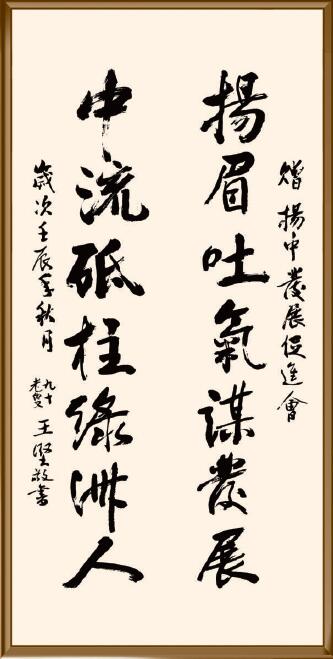 贈揚中發展促進會
揚眉吐氣謀發展
中流砥柱綠洲人
歲次壬辰年秋月
九十老叟王堅敬書